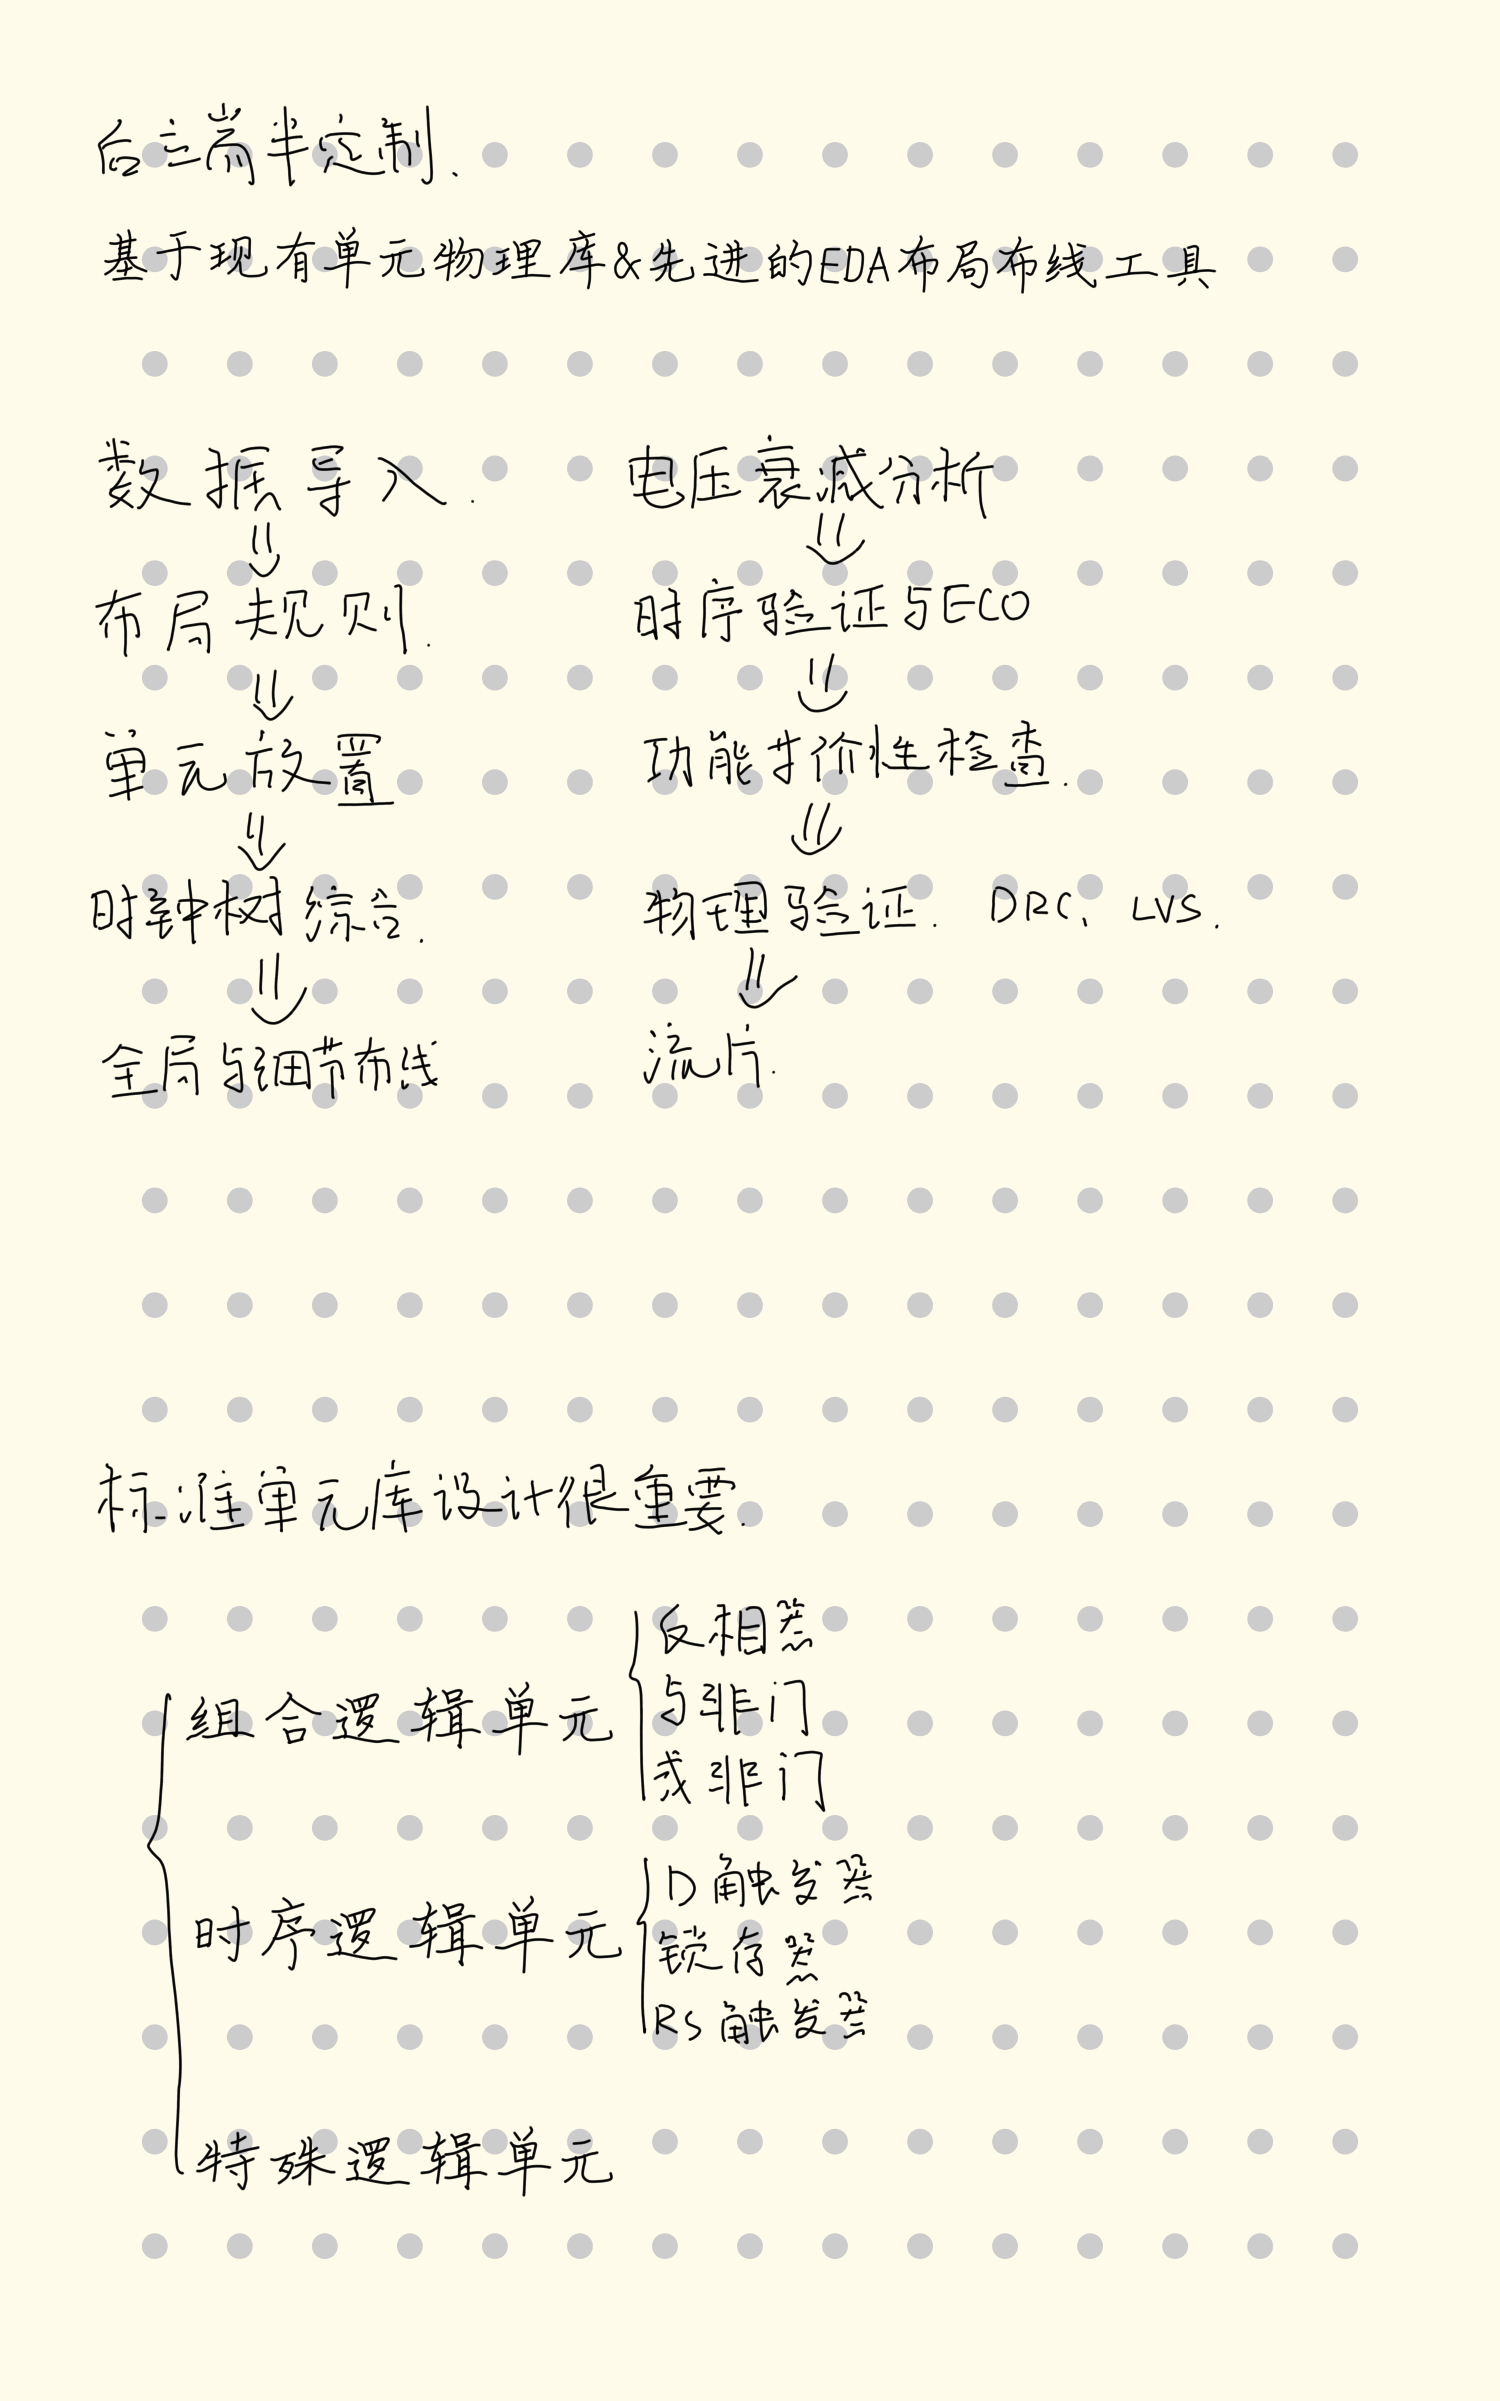 后端半定制.
基于现有单元物理库&先进的EDA布局布线工具
数据导入.
布局规则.
单元放置
时钟树综合.
全局与细节布线
电压衰减分析
时序验证与ECO
功能等价性检查.
物理验证. DRC、LVS.
流片.
标准单元库设计很重要.
组合逻辑单元
反相器
与非门
或非门
时序逻辑单元
D触发器
锁存器
RS触发器
特殊逻辑单元